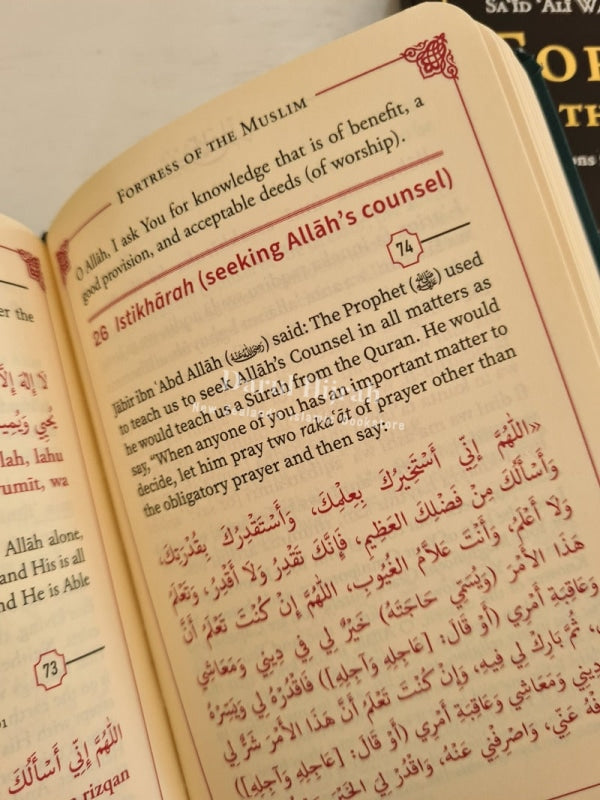 er the
لَا إِلَهَ إِلَّا
يُحْيِي وَيُمِيتُ
lah, lahu
umit, wa
Allāh alone,
and His is all
nd He is Able
73
اللَّهُمَّ إِنِّي أَسْأَلُكَ
rizqan
FORTRESS OF THE MUSLIM
O Allāh, I ask You for knowledge that is of benefit, a
good provision, and acceptable deeds (of worship).
26 Istikhārah (seeking Allāh's counsel)
74
Jābir ibn ʿAbd Allāh (رضي الله عنه) said: The Prophet (ﷺ) used
to teach us to seek Allāh's Counsel in all matters as
he would teach us a Sūrah from the Quran. He would
say, "When anyone of you has an important matter to
decide, let him pray two rakaʿāt of prayer other than
the obligatory prayer and then say:
«اللَّهُمَّ إِنِّي أَسْتَخِيرُكَ بِعِلْمِكَ، وَأَسْتَقْدِرُكَ بِقُدْرَتِكَ،
وَأَسْأَلُكَ مِنْ فَضْلِكَ الْعَظِيمِ، فَإِنَّكَ تَقْدِرُ وَلَا أَقْدِرُ، وَتَعْلَمُ
وَلَا أَعْلَمُ، وَأَنْتَ عَلَّامُ الْغُيُوبِ، اللَّهُمَّ إِنْ كُنْتَ تَعْلَمُ أَنَّ
هَذَا الْأَمْرَ (وَيُسَمِّي حَاجَتَهُ) خَيْرٌ لِي فِي دِينِي وَمَعَاشِي
وَعَاقِبَةِ أَمْرِي (أَوْ قَالَ: [عَاجِلِهِ وَآجِلِهِ]) فَاقْدُرْهُ لِي وَيَسِّرْهُ
، ثُمَّ بَارِكْ لِي فِيهِ، وَإِنْ كُنْتَ تَعْلَمُ أَنَّ هَذَا الْأَمْرَ شَرٌّ لِي
دِينِي وَمَعَاشِي وَعَاقِبَةِ أَمْرِي (أَوْ قَالَ: [عَاجِلِهِ وَآجِلِهِ])
فْهُ عَنِّي، وَاصْرِفْنِي عَنْهُ، وَاقْدُرْ لِي الْخَيْرَ
SAʿID ʿALI WA
FOR
TH
ons
Darul Hijrah
New Zealand Islamic Bookstore